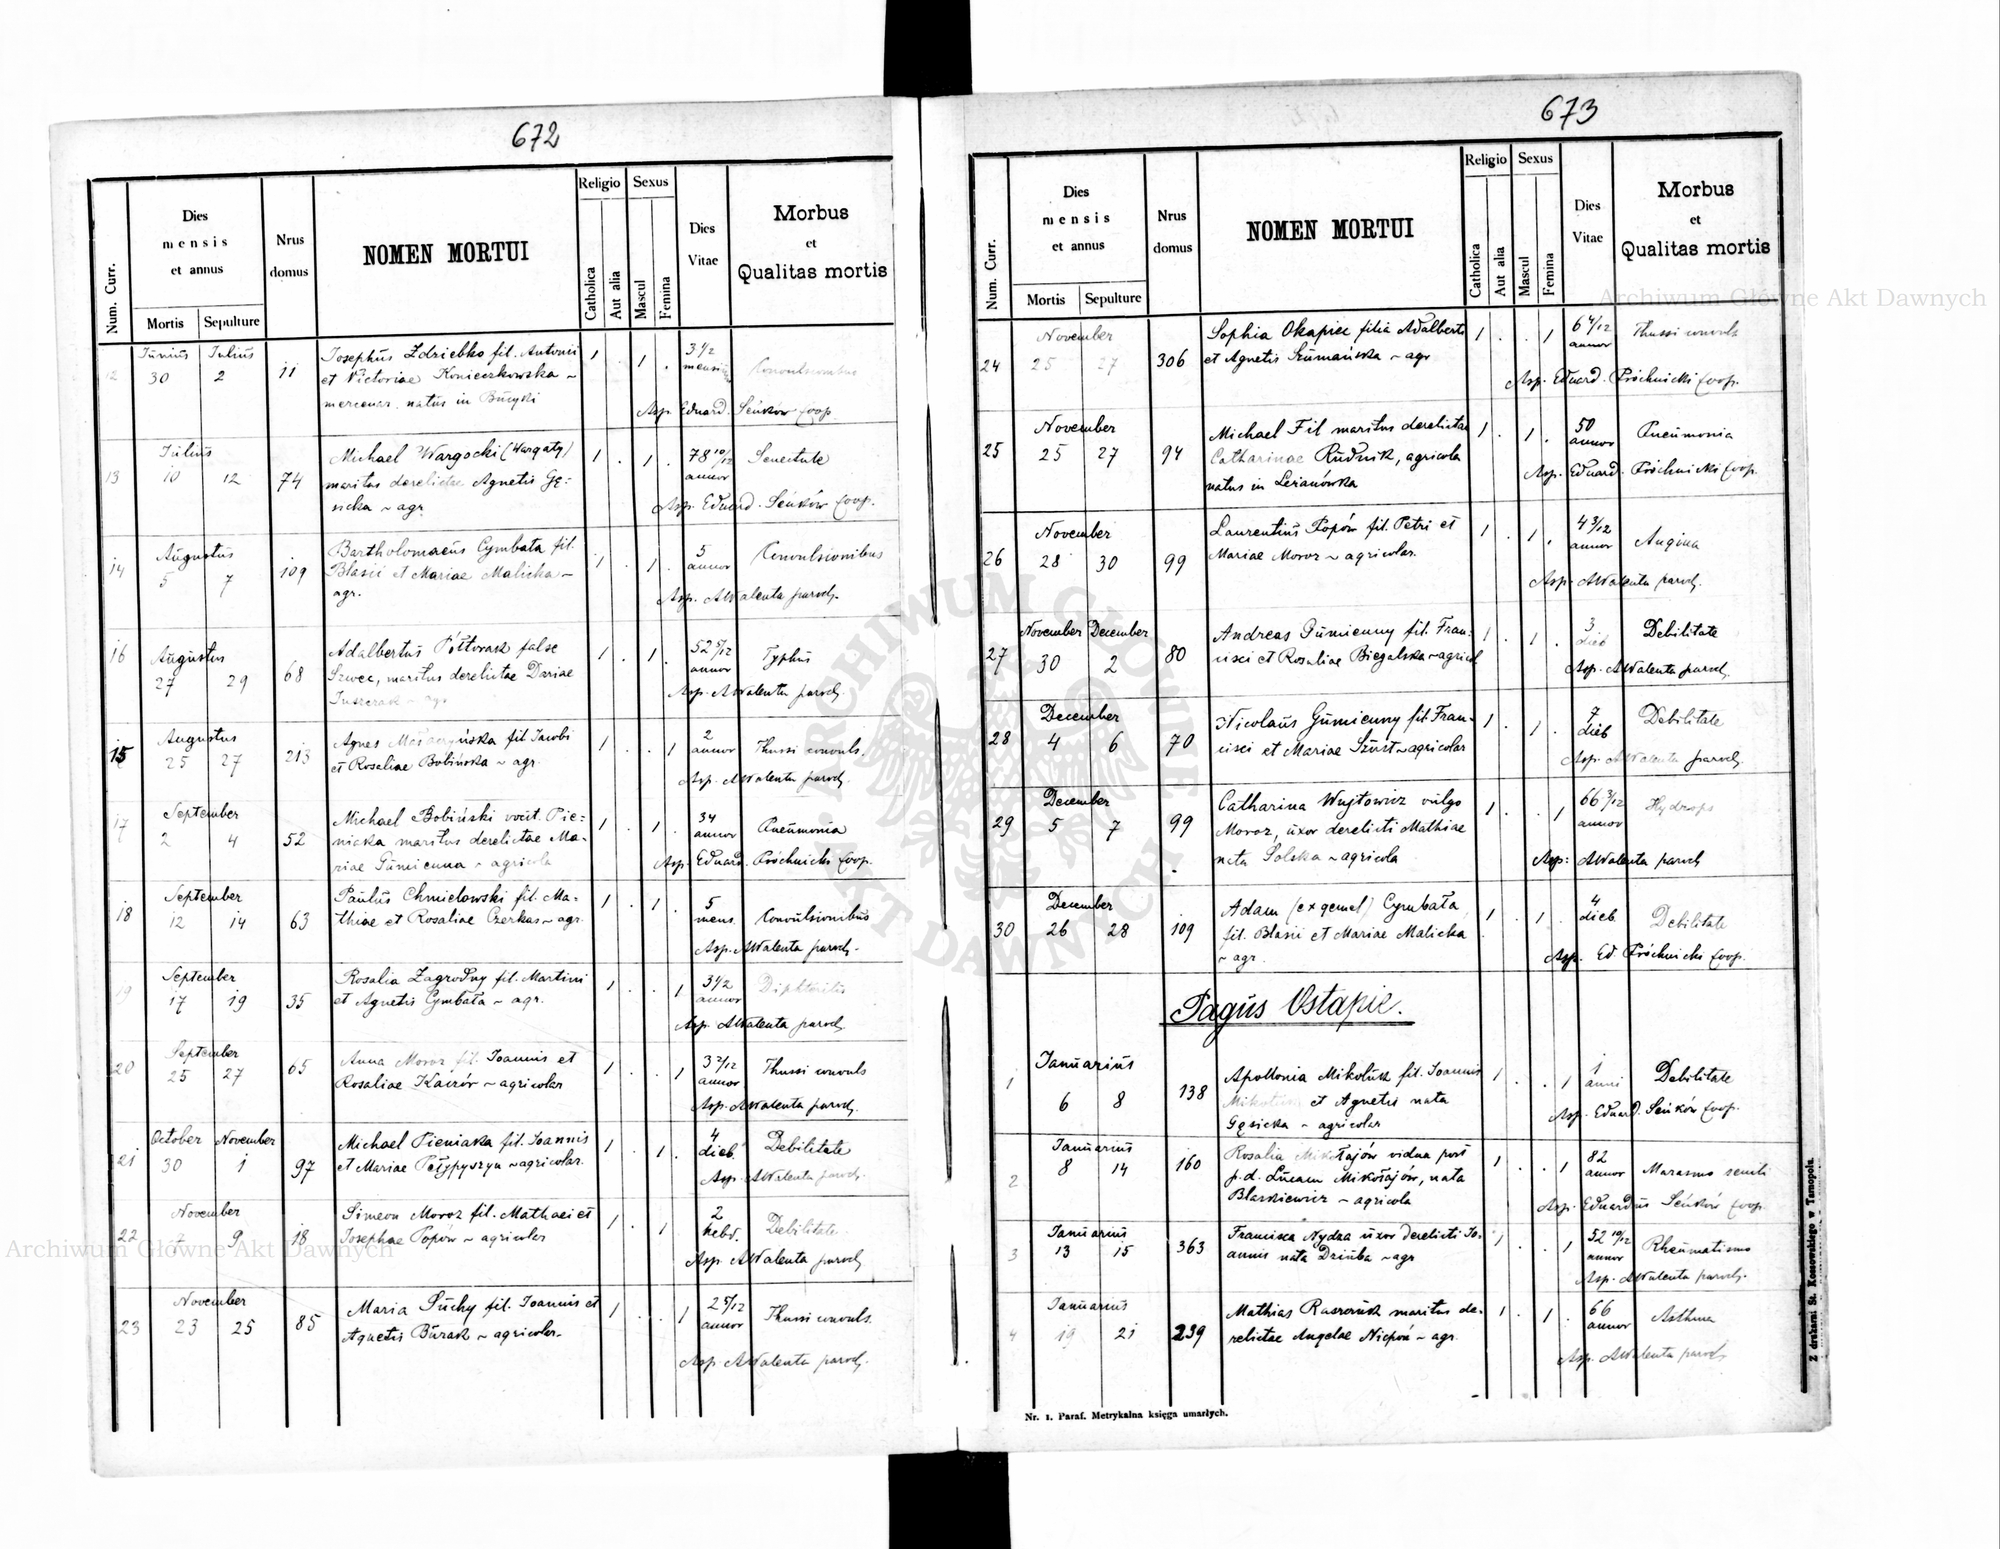 672
Num. Curr.
Dies
mensis
et annus
Mortis
Sepulture
Nrus
domus
NOMEN MORTUI
Religio
Catholica
Aut alia
Sexus
Mascul
Femina
Dies
Vitae
Morbus
et
Qualitas mortis
12 Junius 30 Julius 2 11 Josephus Zdziebko fil. Antonii 1 . 1 . 3 1/2
et Victoriae Konieczkowska ~ mensi Convulsionibus
mercenar. natus in Bucyki
Asp. Eduard. Seńków Coop.
13 Julius 10 12 74 Michael Wargocki (Wargaty) 1 . 1 . 78 10/12 annor Senectute
maritus derelictae Agnetis Gę=
sicka ~ agr.
Asp. Eduard. Seńków Coop.
14 Augustus 5 7 109 Bartholomaeus Cymbała fil. 1 . 1 . 5 annor Convulsionibus
Blasii et Mariae Malicka ~
agr.
Asp. AWalenta paroch.
16 Augustus 27 29 68 Adalbertus Półtorak false 1 . 1 . 52 5/12 annor Typhus
Szwec, maritus derelictae Dariae
~ agr
Asp. AWalenta paroch.
15 Augustus 25 27 213 Agnes fil. Jacobi 1 . . 1 2 annor Thussi convuls.
et Rosaliae Bobińska ~ agr.
Asp. AWalenta paroch.
17 September 2 4 52 Michael Bobiński vocit. Pie= 1 . 1 . 34 annor Pneumonia
niacka maritus derelictae Ma=
riae Gumienna ~ agricola
Asp. Eduard. Próchnicki Coop.
18 September 12 14 63 Paulus Chmielowski fil. Ma= 1 . 1 . 5 mens. Convulsionibus
thiae et Rosaliae Czerkas ~ agr.
Asp. AWalenta paroch.
19 September 17 19 35 Rosalia Zagrodny fil. Martini 1 . . 1 3 1/2 annor Diphteritis
et Agnetis Cymbała ~ agr.
Asp. AWalenta paroch.
20 September 25 27 65 Anna Moroz fil. Joannis et 1 . . 1 3 2/12 annor Thussi convuls
Rosaliae Kaczór ~ agricolar
Asp. AWalenta paroch.
21 October 30 November 1 97 Michael Pieniaka fil. Joannis 1 . 1 . 4 dieb. Debilitate
et Mariae ~ agricolar.
Asp. AWalenta paroch.
22 November 7 9 18 Simeon Moroz fil. Mathaei et 1 . 1 2 hebd. Debilitate
Josephae Popów ~ agricolar
Asp. AWalenta paroch
23 November 23 25 85 Maria Suchy fil. Joannis et 1 . . 1 2 5/12 annor Thussi convuls.
Agnetis Burak ~ agricolar.
Asp. AWalenta paroch.
673
Num. Curr.
Dies
mensis
et annus
Mortis
Sepulture
Nrus
domus
NOMEN MORTUI
Religio
Catholica
Aut alia
Sexus
Mascul
Femina
Dies
Vitae
Morbus
et
Qualitas mortis
24 November 25 27 306 Sophia Okapiec filia Adalberti 1 . . 1 6 4/12 annor Thussi convuls
et Agnetis Szumańska ~ agr
Asp. Eduard. Próchnicki Coop.
25 November 25 27 94 Michael Fil maritus derelictae 1 . 1 . 50 annor Pneumonia
Catharinae Rudnik, agricola
natus in Leżanówka
Asp. Eduard. Próchnicki Coop.
26 November 28 30 99 Laurentius Popów fil. Petri et 1 . 1 . 4 3/12 annor Angina
Mariae Moroz ~ agricolar.
Asp. AWalenta paroch.
27 November 30 December 2 80 Andreas Gumienny fil. Fran= 1 . 1 . 3 dieb Debilitate
cisci et Rosaliae Biegalska ~ agricol
Asp. AWalenta paroch.
28 December 4 6 70 Nicolaus Gumienny fil. Fran= 1 . 1 . 7 dieb Debilitate
cisci et Mariae Szust ~ agricolar
Asp. AWalenta paroch.
29 December 5 7 99 Catharina Wujtowicz vulgo 1 . . 1 66 3/12 annor Hydrops
Moroz, uxor derelicti Mathiae
nata Solska ~ agricola
Asp: AWalenta paroch
30 December 26 28 109 Adam (ex gemel) Cymbała, 1 . 1 . 4 dieb Debilitate
fil. Blasii et Mariae Malicka
~ agr.
Asp. Ed. Próchnicki Coop.
Pagus Ostapie.
1 Januarius 6 8 138 Apollonia Mikoluk fil. Joannis 1 . . 1 1 anni Debilitate
et Agnetis nata
Gęsicka ~ agricolar
Asp. Eduard. Seńków Coop.
2 Januarius 8 14 160 Rosalia Mikołajów vidua post 1 . . 1 82 annor Marasmo senili
p.d. Lucam Mikołajów, nata
Blaskiewicz ~ agricola
Asp. Eduardus Seńków Coop.
3 Januarius 13 15 363 Francisca Nydza uxor derelicti Jo= 1 . . 1 52 10/12 annor Rheumatismo
annis nata Dziuba ~ agr
Asp. AWalenta paroch.
4 Januarius 19 21 239 Mathias Raszczuk maritus de= 1 . 1 . 66 annor Asthma
relictae Angelae Niepoń ~ agr.
Asp. AWalenta paroch
Nr. 1. Paraf. Metrykalna księga umarłych.
Z drukarni St. Kossowskiego w Tarnopolu.
Archiwum Główne Akt Dawnych
Archiwum Główne Akt Dawnych
ARCHIWUM GŁÓWNE AKT DAWNYCH